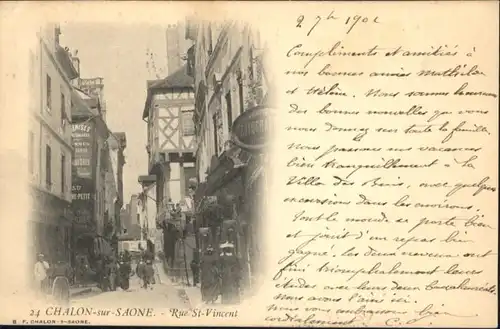 2 7bre 1902
Compliments et amitiés à
nos bonnes amies Mathilde
et Hélène. Nous sommes heureux
des bonnes nouvelles que vous
nous donnez sur toute la famille.
Nous passons nos vacances
bien tranquillement à la
Villa des Buis, avec quelques
excursions dans les environs.
Tout le monde se porte bien
et jouit d'un repos bien
gagné. Les deux neveux ont
fini triomphalement leurs
études avec leurs deux baccalauréats.
Nous avons
Nous vous embrassons bien
cordialement. C.
24 CHALON-sur-SAONE. - Rue St-Vincent
B. F. CHALON-S-SAONE.